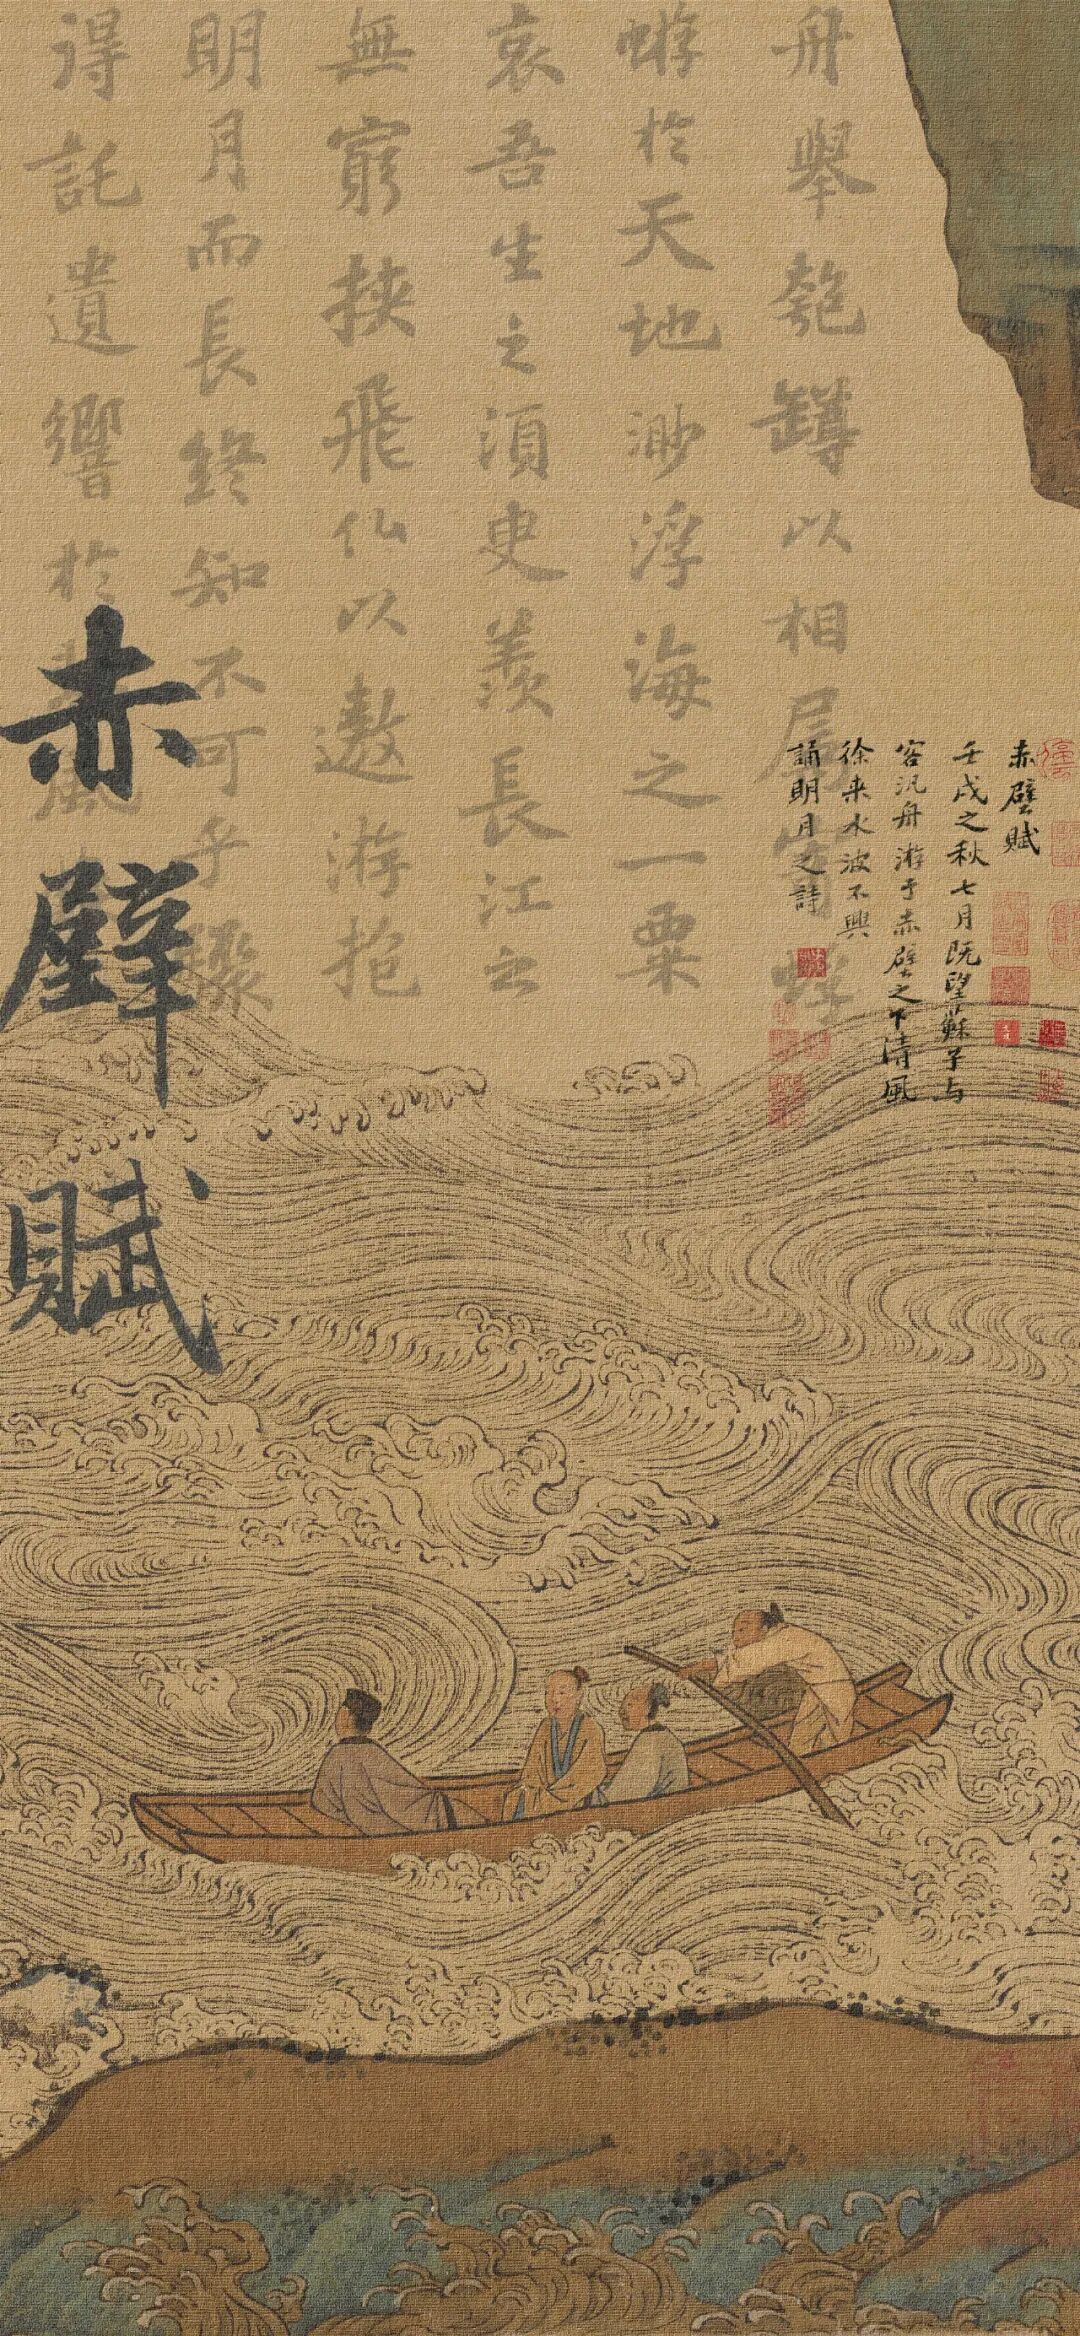 舟舉匏罇以相屬寄蜉
蝣於天地渺浮海之一粟
哀吾生之須臾羨長江之
無窮挾飛仙以遨游抱
明月而長終知不可乎驟
得託遺響於悲風
赤壁賦
赤壁賦
壬戌之秋七月既望蘇子与
客汎舟游于赤壁之下清風
徐来水波不興
誦明月之詩